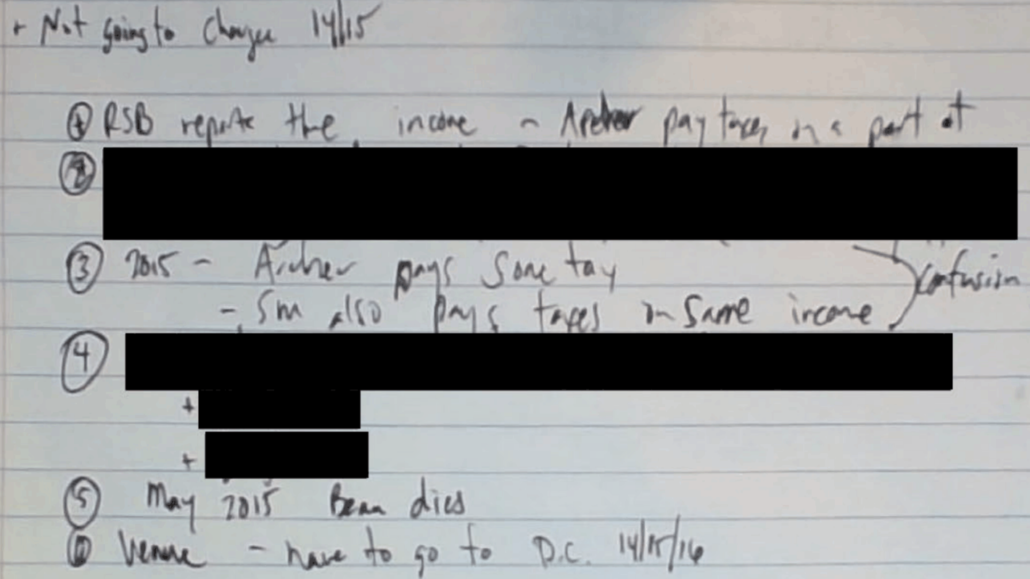 + Not going to Charge 14/15
① RSB reports the income - Archer pay taxes on a part of
②
③ 2015 - Archer pays some tax
- Sm also pays taxes on same income
confusion
④
+
+
⑤ May 2015 Beau dies
⑥ Venue - have to go to D.C. 14/15/16